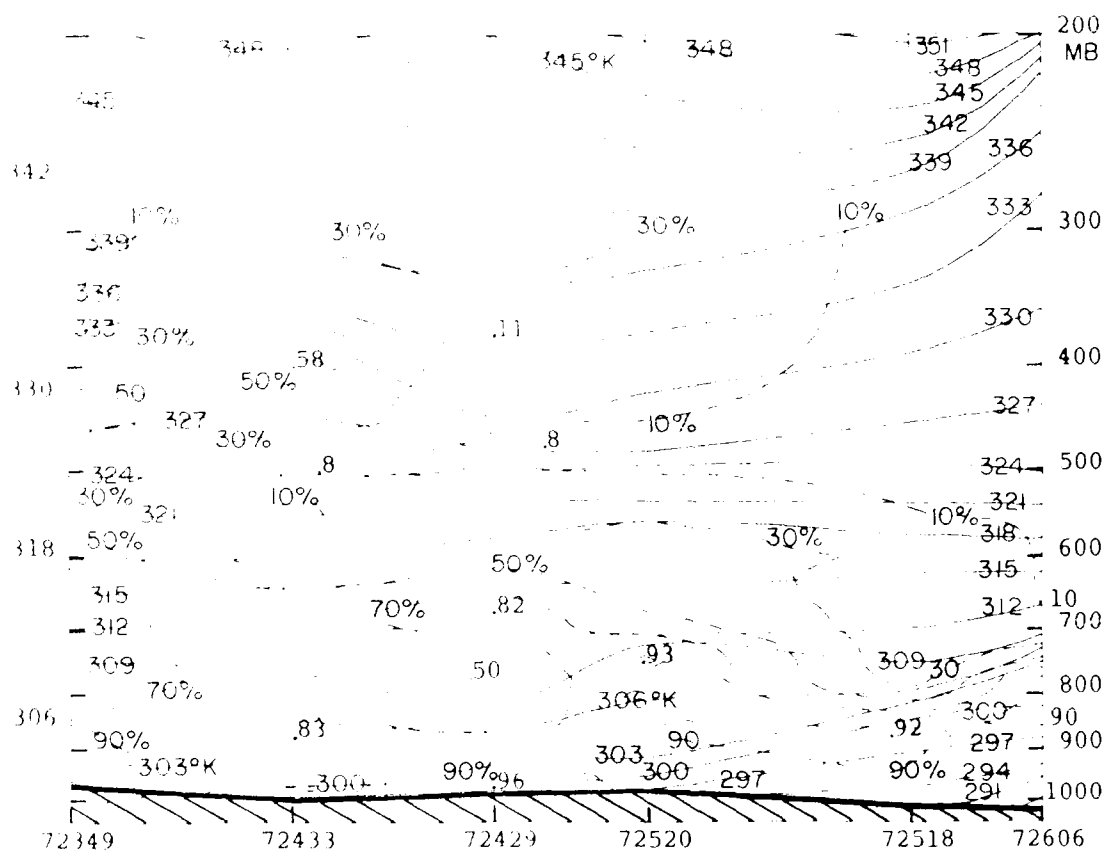 200
348 345°K 348 351 MB
348
345 345
342
342 339 336
10% 30% 30% 10% 333 300
339
336
333 30% .11 330
.58 400
330 50 50% 327
327 30% .8 10%
.8 324 500
324
30% 10% 321
321 10%
318 50% 30% 318 600
50% 315
315 70% .82 312 10
312 700
309 50 .93 309 30
70% 306°K 800
306 .83 300 90
90% 303 90 .92 297 900
303°K 300 90% .96 300 297 90% 294
291 1000
72349 72433 72429 72520 72518 72606